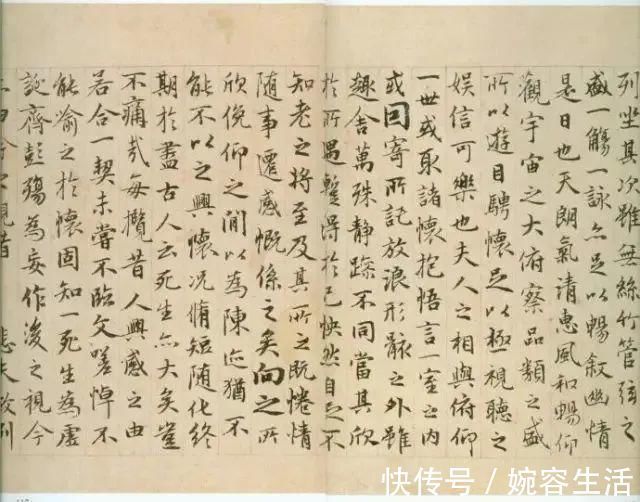 列坐其次雖無絲竹管弦之
盛一觴一詠亦足以暢敘幽情
是日也天朗氣清惠風和暢仰
觀宇宙之大俯察品類之盛
所以遊目騁懷足以極視聽之
娛信可樂也夫人之相與俯仰
一世或取諸懷抱悟言一室之內
或因寄所託放浪形骸之外雖
趣舍萬殊靜躁不同當其欣
於所遇蹔得於己怏然自足不
知老之將至及其所之既惓情
隨事遷感慨係之矣向之所
欣俛仰之閒以為陳迹猶不
能不以之興懷況脩短隨化終
期於盡古人云死生亦大矣豈
不痛哉每攬昔人興感之由
若合一契未嘗不臨文嗟悼不
能喻之於懷固知一死生為虛
誕齊彭殤為妄作後之視今
視昔 悲夫故列
快传号/婉容生活